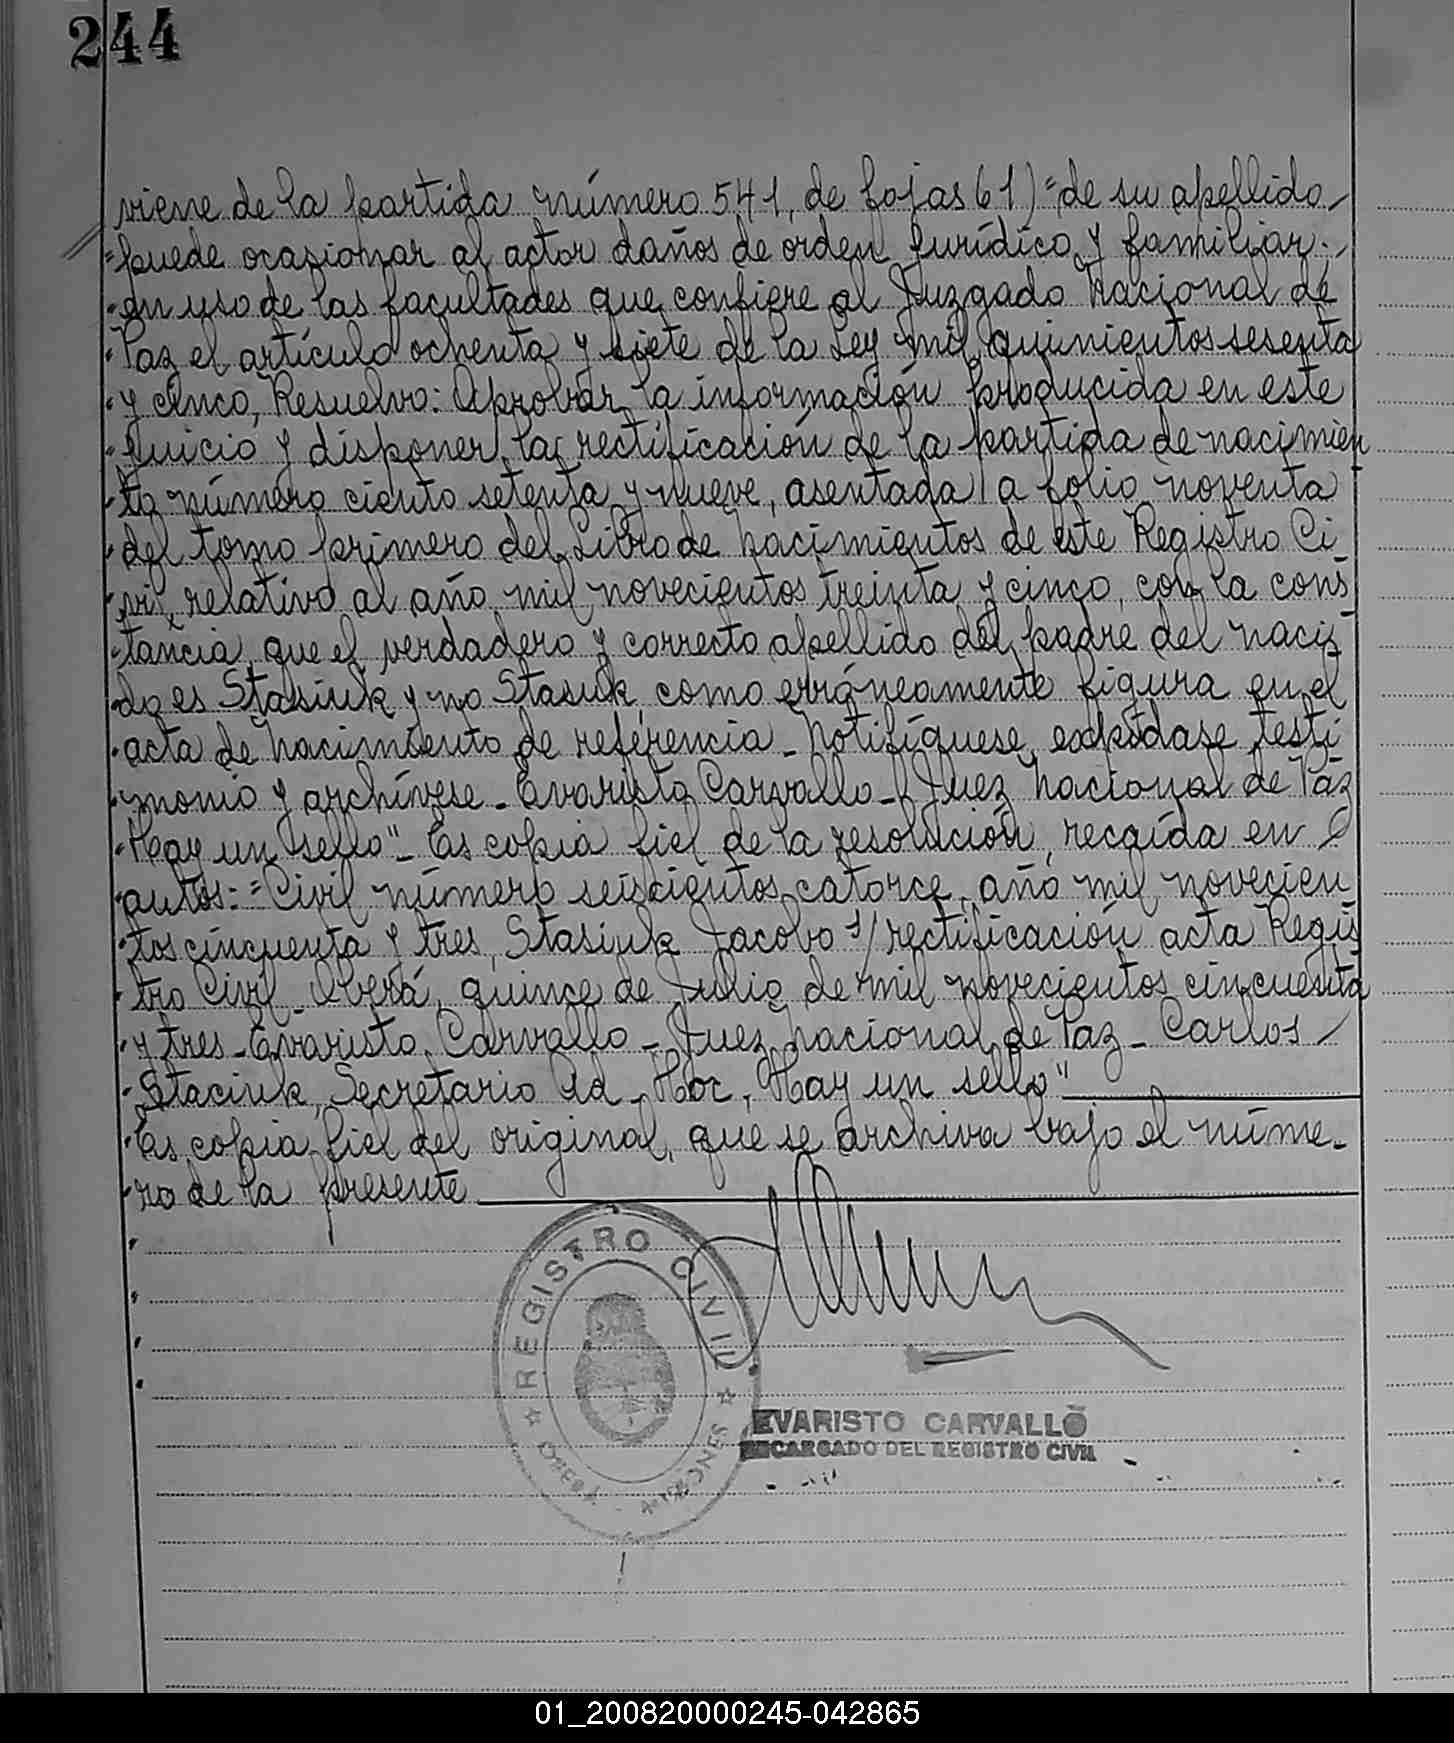 244
viene de la partida número 541, de fojas 61) "de su apellido
"puede ocasionar al actor daños de orden jurídico y familiar;
"en uso de las facultades que confiere al Juzgado Nacional de
"Paz el artículo ochenta y siete de la Ley mil quinientos sesenta
"y cinco, Resuelvo: Aprobar la información producida en este
"juicio y disponer la rectificación de la partida de nacimien
"to número ciento setenta y nueve, asentada a folio noventa
"del tomo primero del Libro de Nacimientos de este Registro Ci
"vil, relativo al año mil novecientos treinta y cinco, con la cons
"tancia, que el verdadero y correcto apellido del padre del naci
"do es Stasiuk y no Stasuk, como erróneamente figura en el
"acta de nacimiento de referencia _ Notifíquese, expídase testi
"monio y archívese _ Evaristo Carvallo _ Juez Nacional de Paz
"Hay un sello" _ Es copia fiel de la resolución, recaída en
"autos: "Civil número seiscientos catorce, año mil novecien
"tos cincuenta y tres, Stasiuk Jacobo s/ rectificación acta Regis
"tro Civil _ Oberá, quince de Julio de mil novecientos cincuenta
"y tres _ Evaristo Carvallo _ Juez Nacional de Paz _ Carlos
"Staciuk, Secretario Ad _ Hoc, Hay un sello"
"Es copia fiel del original, que se archiva bajo el núme_
"ro de la presente
REGISTRO CIVIL
MISIONES
OBERA
EVARISTO CARVALLO
ENCARGADO DEL REGISTRO CIVIL
01_200820000245-042865